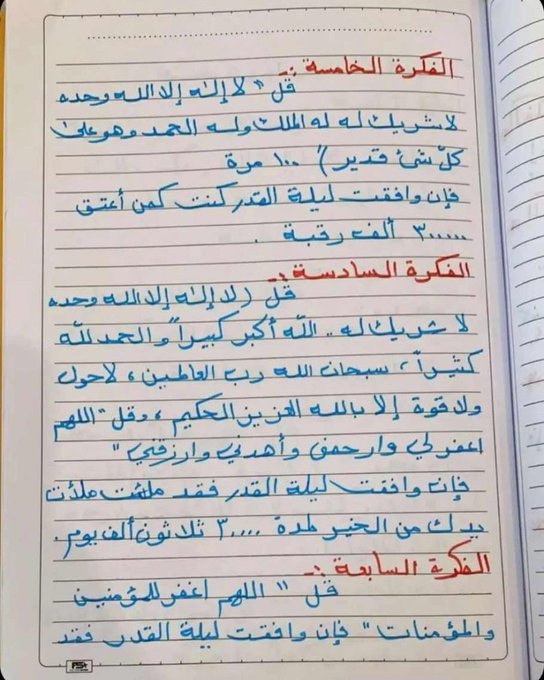 الفكرة الخامسة :-
قل " لا إله إلا الله وحده
لا شريك له له الملك وله الحمد وهو على
كلّ شئ قدير )" ١٠٠ مرة
فإن وافقت ليلة القدر كنت كمن أعتق
٣٠٠٠٠٠ ألف رقبة .
الفكرة السادسة :-
قل (لا إله إلا الله وحده
لا شريك له .. الله أكبر كبيراً والحمد لله
كثيراً ، سبحان الله رب العالمين ، لا حول
ولا قوة إلا بالله العزيز الحكيم ، وقل " اللهم
اغفر لي وارحمني وأهدني وارزقني "
فإن وافقت ليلة القدر فقد ملئت ملأت
يدك من الخير لمدة ٣٠٠٠٠ ثلاثون ألف يوم.
الفكرة السابعة :-
قل " اللهم اغفر للمؤمنين
والمؤمنات " فإن وافقت ليلة القدر فقد